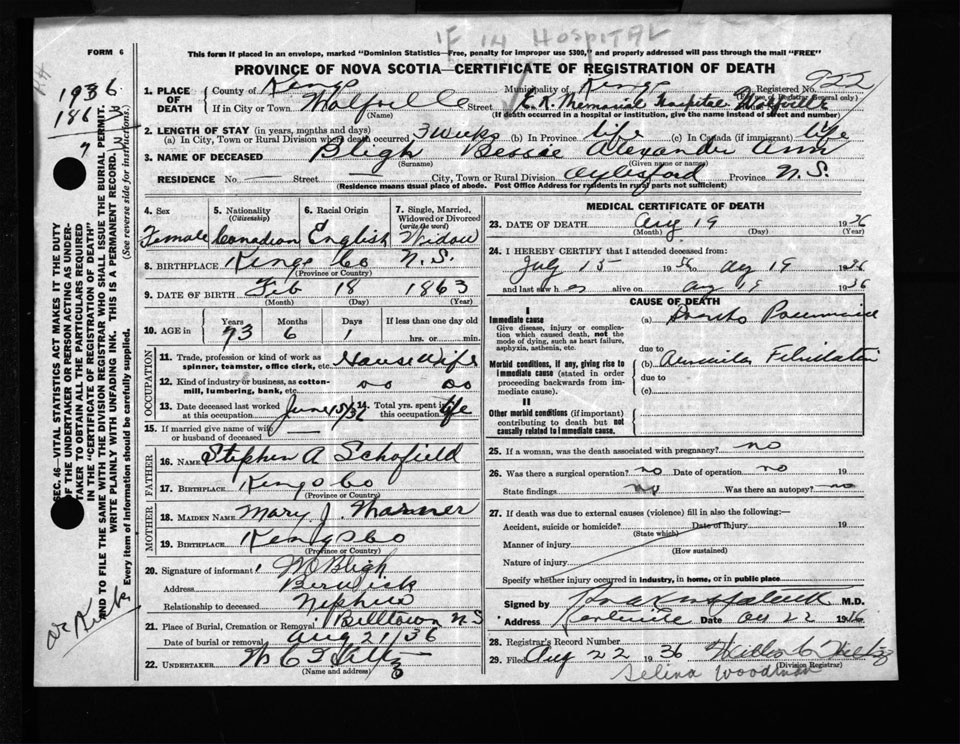 IF IN HOSPITAL
FORM 6
This form if placed in an envelope, marked "Dominion Statistics—Free, penalty for improper use $300," and properly addressed will pass through the mail "FREE"
PROVINCE OF NOVA SCOTIA—CERTIFICATE OF REGISTRATION OF DEATH
1936
186
922
1. PLACE OF DEATH County of Kings Municipality of Kings Registered No.
(Registrar General only)
If in City or Town Wolfville Street Memorial Hospital Wolfville
(Name) (If death occurred in a hospital or institution, give the name instead of street and number)
2. LENGTH OF STAY (in years, months and days)
(a) In City, Town or Rural Division where death occurred 3 weeks (b) In Province life (c) In Canada (if immigrant) life
3. NAME OF DECEASED Bligh Bessie Alexander Ann
(Surname) (Given name or names)
RESIDENCE No. — Street — City, Town or Rural Division Aylesford Province N.S.
(Residence means usual place of abode. Post Office Address for residents in rural parts not sufficient)
4. Sex Female
5. Nationality (Citizenship) Canadian
6. Racial Origin English
7. Single, Married, Widowed or Divorced (write the word) Widow
8. BIRTHPLACE Kings Co N.S.
(Province or Country)
9. DATE OF BIRTH Feb 18 1863
(Month) (Day) (Year)
10. AGE in Years Months Days If less than one day old
73 6 1 hrs. or min.
OCCUPATION
11. Trade, profession or kind of work as spinner, teamster, office clerk, etc. Housewife
12. Kind of industry or business, as cotton-mill, lumbering, bank, etc.
13. Date deceased last worked at this occupation June 15/36 14. Total yrs. spent in this occupation life
15. If married give name of wife or husband of deceased
FATHER
16. NAME Stephen A Schofield
17. BIRTHPLACE Kings Co
(Province or Country)
MOTHER
18. MAIDEN NAME Mary J.
19. BIRTHPLACE Kings Co
(Province or Country)
20. Signature of informant Bligh
Address Berwick
Relationship to deceased Nephew
21. Place of Burial, Cremation or Removal Billtown N S
Date of burial or removal Aug 21/36
22. UNDERTAKER
(Name and address)
MEDICAL CERTIFICATE OF DEATH
23. DATE OF DEATH Aug 19 1936
(Month) (Day) (Year)
24. I HEREBY CERTIFY that I attended deceased from:
July 15 1936 to Aug 19 1936
and last saw her alive on Aug 19 1936
CAUSE OF DEATH
I
Immediate cause
Give disease, injury or complication which caused death, not the mode of dying, such as heart failure, asphyxia, asthenia, etc.
(a)
due to
Morbid conditions, if any, giving rise to immediate cause (stated in order proceeding backwards from immediate cause).
(b)
due to
(c)
II
Other morbid conditions (if important) contributing to death but not causally related to immediate cause.
25. If a woman, was the death associated with pregnancy? no
26. Was there a surgical operation? no Date of operation no 19
State findings no Was there an autopsy? no
27. If death was due to external causes (violence) fill in also the following:—
Accident, suicide or homicide? Date of injury 19
(State which)
Manner of injury
(How sustained)
Nature of injury
Specify whether injury occurred in industry, in home, or in public place
Signed by M.D.
Address Kentville Date Aug 22 1936
28. Registrar's Record Number
29. Filed Aug 22 1936
(Division Registrar)
Selina Woodman
SEC. 46—VITAL STATISTICS ACT MAKES IT THE DUTY
OF THE UNDERTAKER OR PERSON ACTING AS UNDER-
TAKER TO OBTAIN ALL THE PARTICULARS REQUIRED
IN THE "CERTIFICATE OF REGISTRATION OF DEATH"
AND TO FILE THE SAME WITH THE DIVISION REGISTRAR WHO SHALL ISSUE THE BURIAL PERMIT.
WRITE PLAINLY WITH UNFADING INK. THIS IS A PERMANENT RECORD.
Every item of information should be carefully supplied. (See reverse side for instructions.)